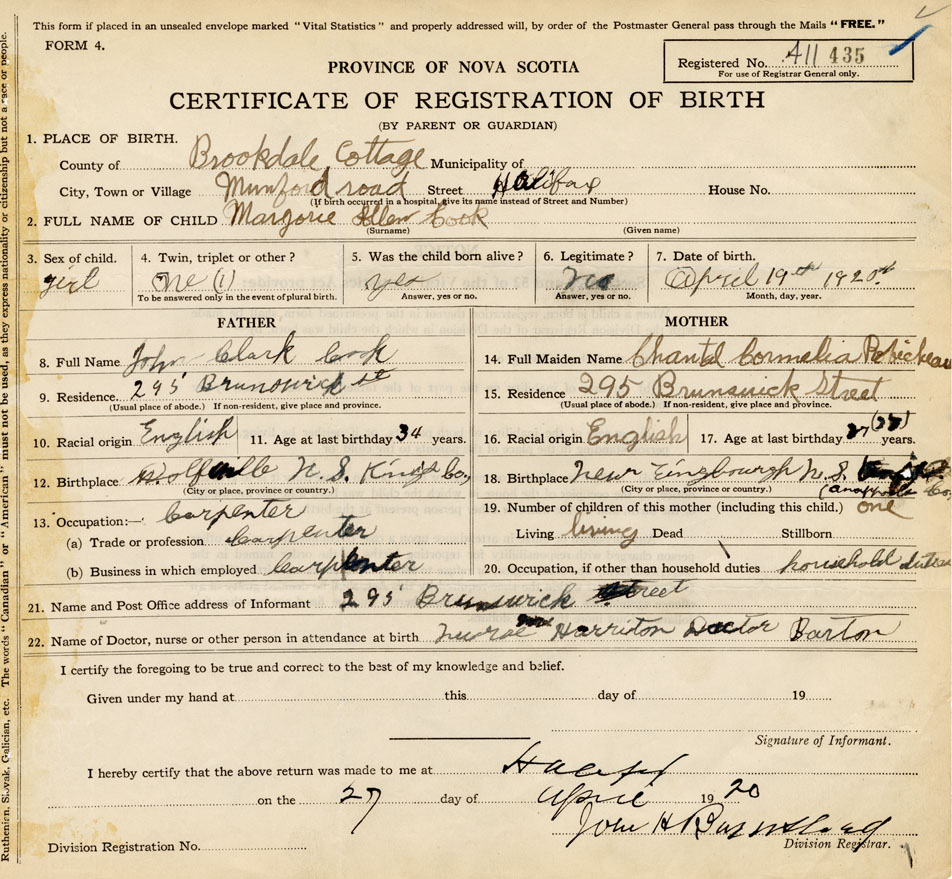 This form if placed in an unsealed envelope marked "Vital Statistics" and properly addressed will, by order of the Postmaster General pass through the Mails "FREE."
FORM 4.
Registered No. 411 435
For use of Registrar General only.
PROVINCE OF NOVA SCOTIA
CERTIFICATE OF REGISTRATION OF BIRTH
(BY PARENT OR GUARDIAN)
1. PLACE OF BIRTH.
County of Brookdale Cottage Municipality of
City, Town or Village Mumford road Street Halifax House No.
(If birth occurred in a hospital, give its name instead of Street and Number)
2. FULL NAME OF CHILD Margorie Ellen Cook
(Surname) (Given name)
3. Sex of child. girl
4. Twin, triplet or other? One (1)
To be answered only in the event of plural birth.
5. Was the child born alive? yes
Answer, yes or no.
6. Legitimate?
Answer, yes or no.
7. Date of birth? April 19th 1920
Month, day, year.
FATHER
8. Full Name John Clark Cook
9. Residence. 295 Brunswick st
(Usual place of abode.) If non-resident, give place and province.
10. Racial origin English 11. Age at last birthday 34 years.
12. Birthplace Wolfville N. S. Kings Co,
(City or place, province or country.)
13. Occupation:— Carpenter
(a) Trade or profession Carpenter
(b) Business in which employed Carpenter
MOTHER
14. Full Maiden Name
15. Residence 295 Brunswick Street
(Usual place of abode.) If non-resident, give place and province.
16. Racial origin English 17. Age at last birthday 27 (27) years.
18. Birthplace New N.S.
(City or place, province or country.)
19. Number of children of this mother (including this child.) one
Living living Dead Stillborn
20. Occupation, if other than household duties household duties
21. Name and Post Office address of Informant 295 Brunswick Street
22. Name of Doctor, nurse or other person in attendance at birth Doctor Barton
I certify the foregoing to be true and correct to the best of my knowledge and belief.
Given under my hand at this day of 19
Signature of Informant.
I hereby certify that the above return was made to me at Halifax
on the 27 day of April 1920
John H
Division Registration No. Division Registrar.
Ruthenien, Slovak, Galician, etc. The words "Canadian" or "American" must not be used, as they express nationality or citizenship but not a race or people.